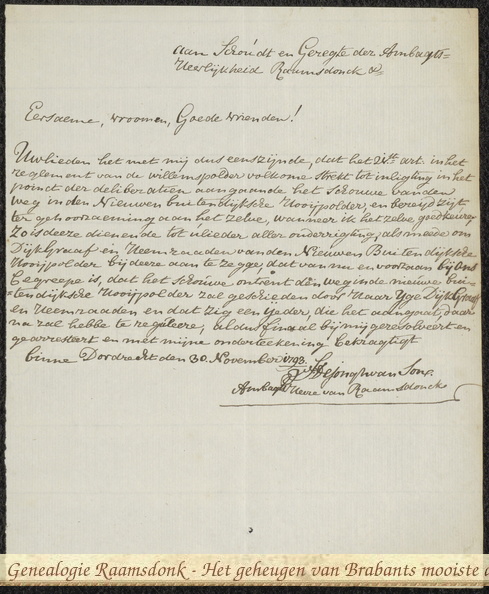 Aan Schoudt en Geregte der Ambagts=
Heerlijkheid Raamsdonck &=
Eersaeme, vroomen, Goede vrienden!
Ulieden het met mij dus eenszijnde, dat het 24.te art. in het
reglement van de willemspolder volkome strekt tot inligting in het
poinct der deliberatien aangaande het Schouwe van den
weg in den Nieuwen buitendijksche Hooijpolder, en bereyd zijt
ter gehooraeming aan het zelve, wanneer ik het zelve goedkeure,
Zo is deeze dienende tot ulieder aller onderrigting, als meede om
Dijkgraaf en Heemraaden van den Nieuwen Buitendijksche
Hooijpolder bij deeze aan te zegge, dat van nu en voortaan bij Ons
begreepe is, dat het Schouwe omtrent den weg in de nieuwe bui=
tendijksche Hooijpolder zal geschieden door Haar Ed. Dijkgraaf
en Heemraaden en dat zig een yeder, die het aangaat, daar
na zal hebbe te reguleere, aldus finaal bij mij geresolveert en
gearresteert en met mijne onderteekening bekragtigt
binne Dordrecht den 30. November 1793.
de Jongh van Son
Ambagts Heere van Raamsdonck
Genealogie Raamsdonk - Het geheugen van Brabants mooiste d